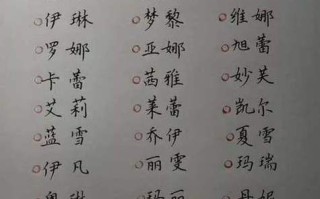 伊琳 梦黎 维娜
罗娜 亚娜 旭蕾
卡蕾 茜雅 妙芙
艾莉 莱蕾 凯尔
蓝雪 乔伊 夏雪
伊凡 丽雯 玛瑞
奥琳 玛丽 丹妮